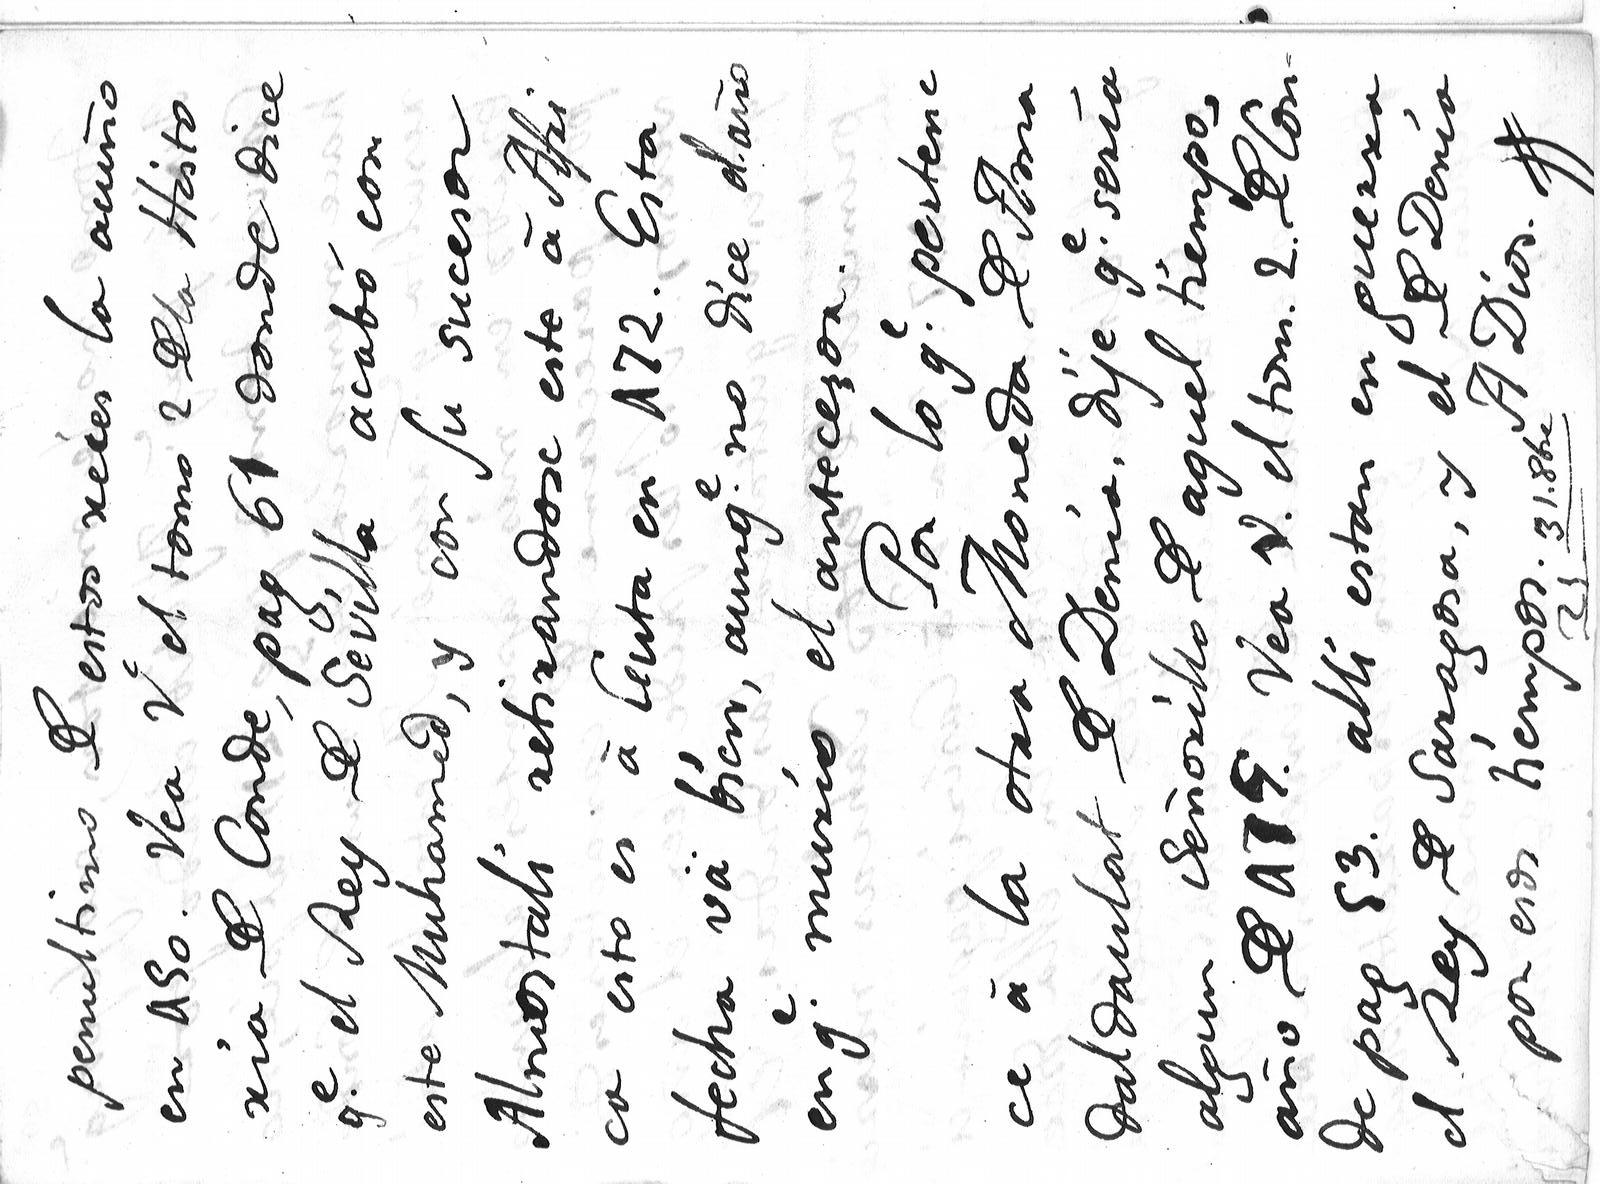 penultimo D estos reies la acuño
en 450. Vea V el tomo 2 Dla Histo
ria D Conde, pag 61 donde dice
q.e el Rey D Sevilla acabó con
este Muhamed, y con su sucesor
Almostali retirandose este à Afri
ca esto es à Ceuta en 472. Esta
fecha và bien, aunq.e no dice el año
en q.e murió el antecezor.
Por lo q.e pertene
ce à la otra Moneda D Ama
daldaulat D Denia, dije q.e seria
algun señorillo D aquel tiempo,
año D 479. Vea V. el tom. 2. D Con-
de pag 53. alli estan en guerra
el Rey D Saragosa, y el D Denia
por esos tiempos. A Dios.
31. 8bre
23